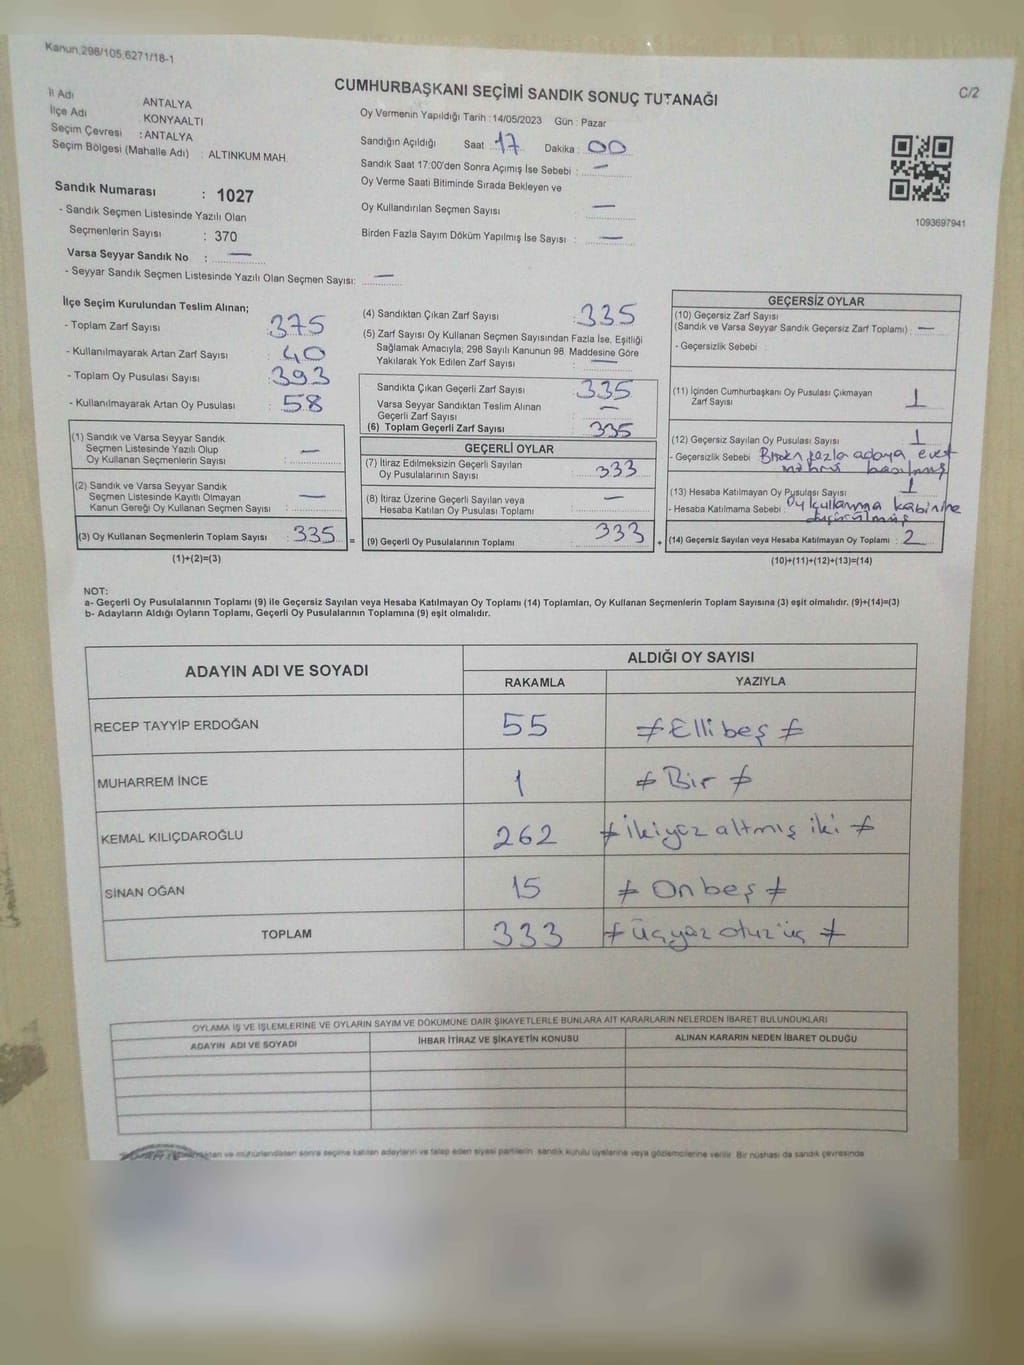 Kanun.298/105.6271/18-1
CUMHURBAŞKANI SEÇİMİ SANDIK SONUÇ TUTANAĞI
C/2
İl Adı ANTALYA
İlçe Adı : KONYAALTI
Seçim Çevresi : ANTALYA
Seçim Bölgesi (Mahalle Adı) : ALTINKUM MAH.
Sandık Numarası : 1027
- Sandık Seçmen Listesinde Yazılı Olan
Seçmenlerin Sayısı : 370
Varsa Seyyar Sandık No : —
- Seyyar Sandık Seçmen Listesinde Yazılı Olan Seçmen Sayısı: —
Oy Vermenin Yapıldığı Tarih : 14/05/2023 Gün : Pazar
Sandığın Açıldığı Saat : 17 Dakika : 00
Sandık Saat 17:00'den Sonra Açımış İse Sebebi : —
Oy Verme Saati Bitiminde Sırada Bekleyen ve
Oy Kullandırılan Seçmen Sayısı : —
Birden Fazla Sayım Döküm Yapılmış İse Sayısı : —
1093697941
İlçe Seçim Kurulundan Teslim Alınan;
- Toplam Zarf Sayısı : 375
- Kullanılmayarak Artan Zarf Sayısı : 40
- Toplam Oy Pusulası Sayısı : 393
- Kullanılmayarak Artan Oy Pusulası : 58
(1) Sandık ve Varsa Seyyar Sandık
Seçmen Listesinde Yazılı Olup
Oy Kullanan Seçmenlerin Sayısı : —
(2) Sandık ve Varsa Seyyar Sandık
Seçmen Listesinde Kayıtlı Olmayan
Kanun Gereği Oy Kullanan Seçmen Sayısı : —
(3) Oy Kullanan Seçmenlerin Toplam Sayısı : 335 =
(1)+(2)=(3)
(4) Sandıktan Çıkan Zarf Sayısı : 335
(5) Zarf Sayısı Oy Kullanan Seçmen Sayısından Fazla İse, Eşitliği
Sağlamak Amacıyla, 298 Sayılı Kanunun 98. Maddesine Göre
Yakılarak Yok Edilen Zarf Sayısı : —
Sandıkta Çıkan Geçerli Zarf Sayısı : 335
Varsa Seyyar Sandıktan Teslim Alınan
Geçerli Zarf Sayısı : —
(6) Toplam Geçerli Zarf Sayısı : 335
GEÇERLİ OYLAR
(7) İtiraz Edilmeksizin Geçerli Sayılan
Oy Pusulalarının Sayısı : 333
(8) İtiraz Üzerine Geçerli Sayılan veya
Hesaba Katılan Oy Pusulası Toplamı : —
(9) Geçerli Oy Pusulalarının Toplamı : 333 +
GEÇERSİZ OYLAR
(10) Geçersiz Zarf Sayısı
(Sandık ve Varsa Seyyar Sandık Geçersiz Zarf Toplamı) : —
- Geçersizlik Sebebi :
(11) İçinden Cumhurbaşkanı Oy Pusulası Çıkmayan
Zarf Sayısı : 1
(12) Geçersiz Sayılan Oy Pusulası Sayısı : 1
- Geçersizlik Sebebi : Birden fazla adaya evet
mührü basılmış
(13) Hesaba Katılmayan Oy Pusulası Sayısı : 1
- Hesaba Katılmama Sebebi : Oy kullanma kabinine
düşürülmüş
(14) Geçersiz Sayılan veya Hesaba Katılmayan Oy Toplamı : 2
(10)+(11)+(12)+(13)=(14)
NOT:
a- Geçerli Oy Pusulalarının Toplamı (9) ile Geçersiz Sayılan veya Hesaba Katılmayan Oy Toplamı (14) Toplamları, Oy Kullanan Seçmenlerin Toplam Sayısına (3) eşit olmalıdır. (9)+(14)=(3)
b- Adayların Aldığı Oyların Toplamı, Geçerli Oy Pusulalarının Toplamına (9) eşit olmalıdır.
ADAYIN ADI VE SOYADI
ALDIĞI OY SAYISI
RAKAMLA YAZIYLA
RECEP TAYYİP ERDOĞAN 55 ≠ Elli beş ≠
MUHARREM İNCE 1 ≠ Bir ≠
KEMAL KILIÇDAROĞLU 262 ≠ İkiyüz altmış iki ≠
SİNAN OĞAN 15 ≠ On beş ≠
TOPLAM 333 ≠ Üçyüz otuz üç ≠
OYLAMA İŞ VE İŞLEMLERİNE VE OYLARIN SAYIM VE DÖKÜMÜNE DAİR ŞİKAYETLERLE BUNLARA AİT KARARLARIN NELERDEN İBARET BULUNDUKLARI
ADAYIN ADI VE SOYADI İHBAR İTİRAZ VE ŞİKAYETİN KONUSU ALINAN KARARIN NEDEN İBARET OLDUĞU
ve mühürlendikten sonra seçime katılan adayların ve talep eden siyasi partilerin sandık kurulu üyelerine veya gözlemcilerine verilir. Bir nüshası da sandık çevresinde